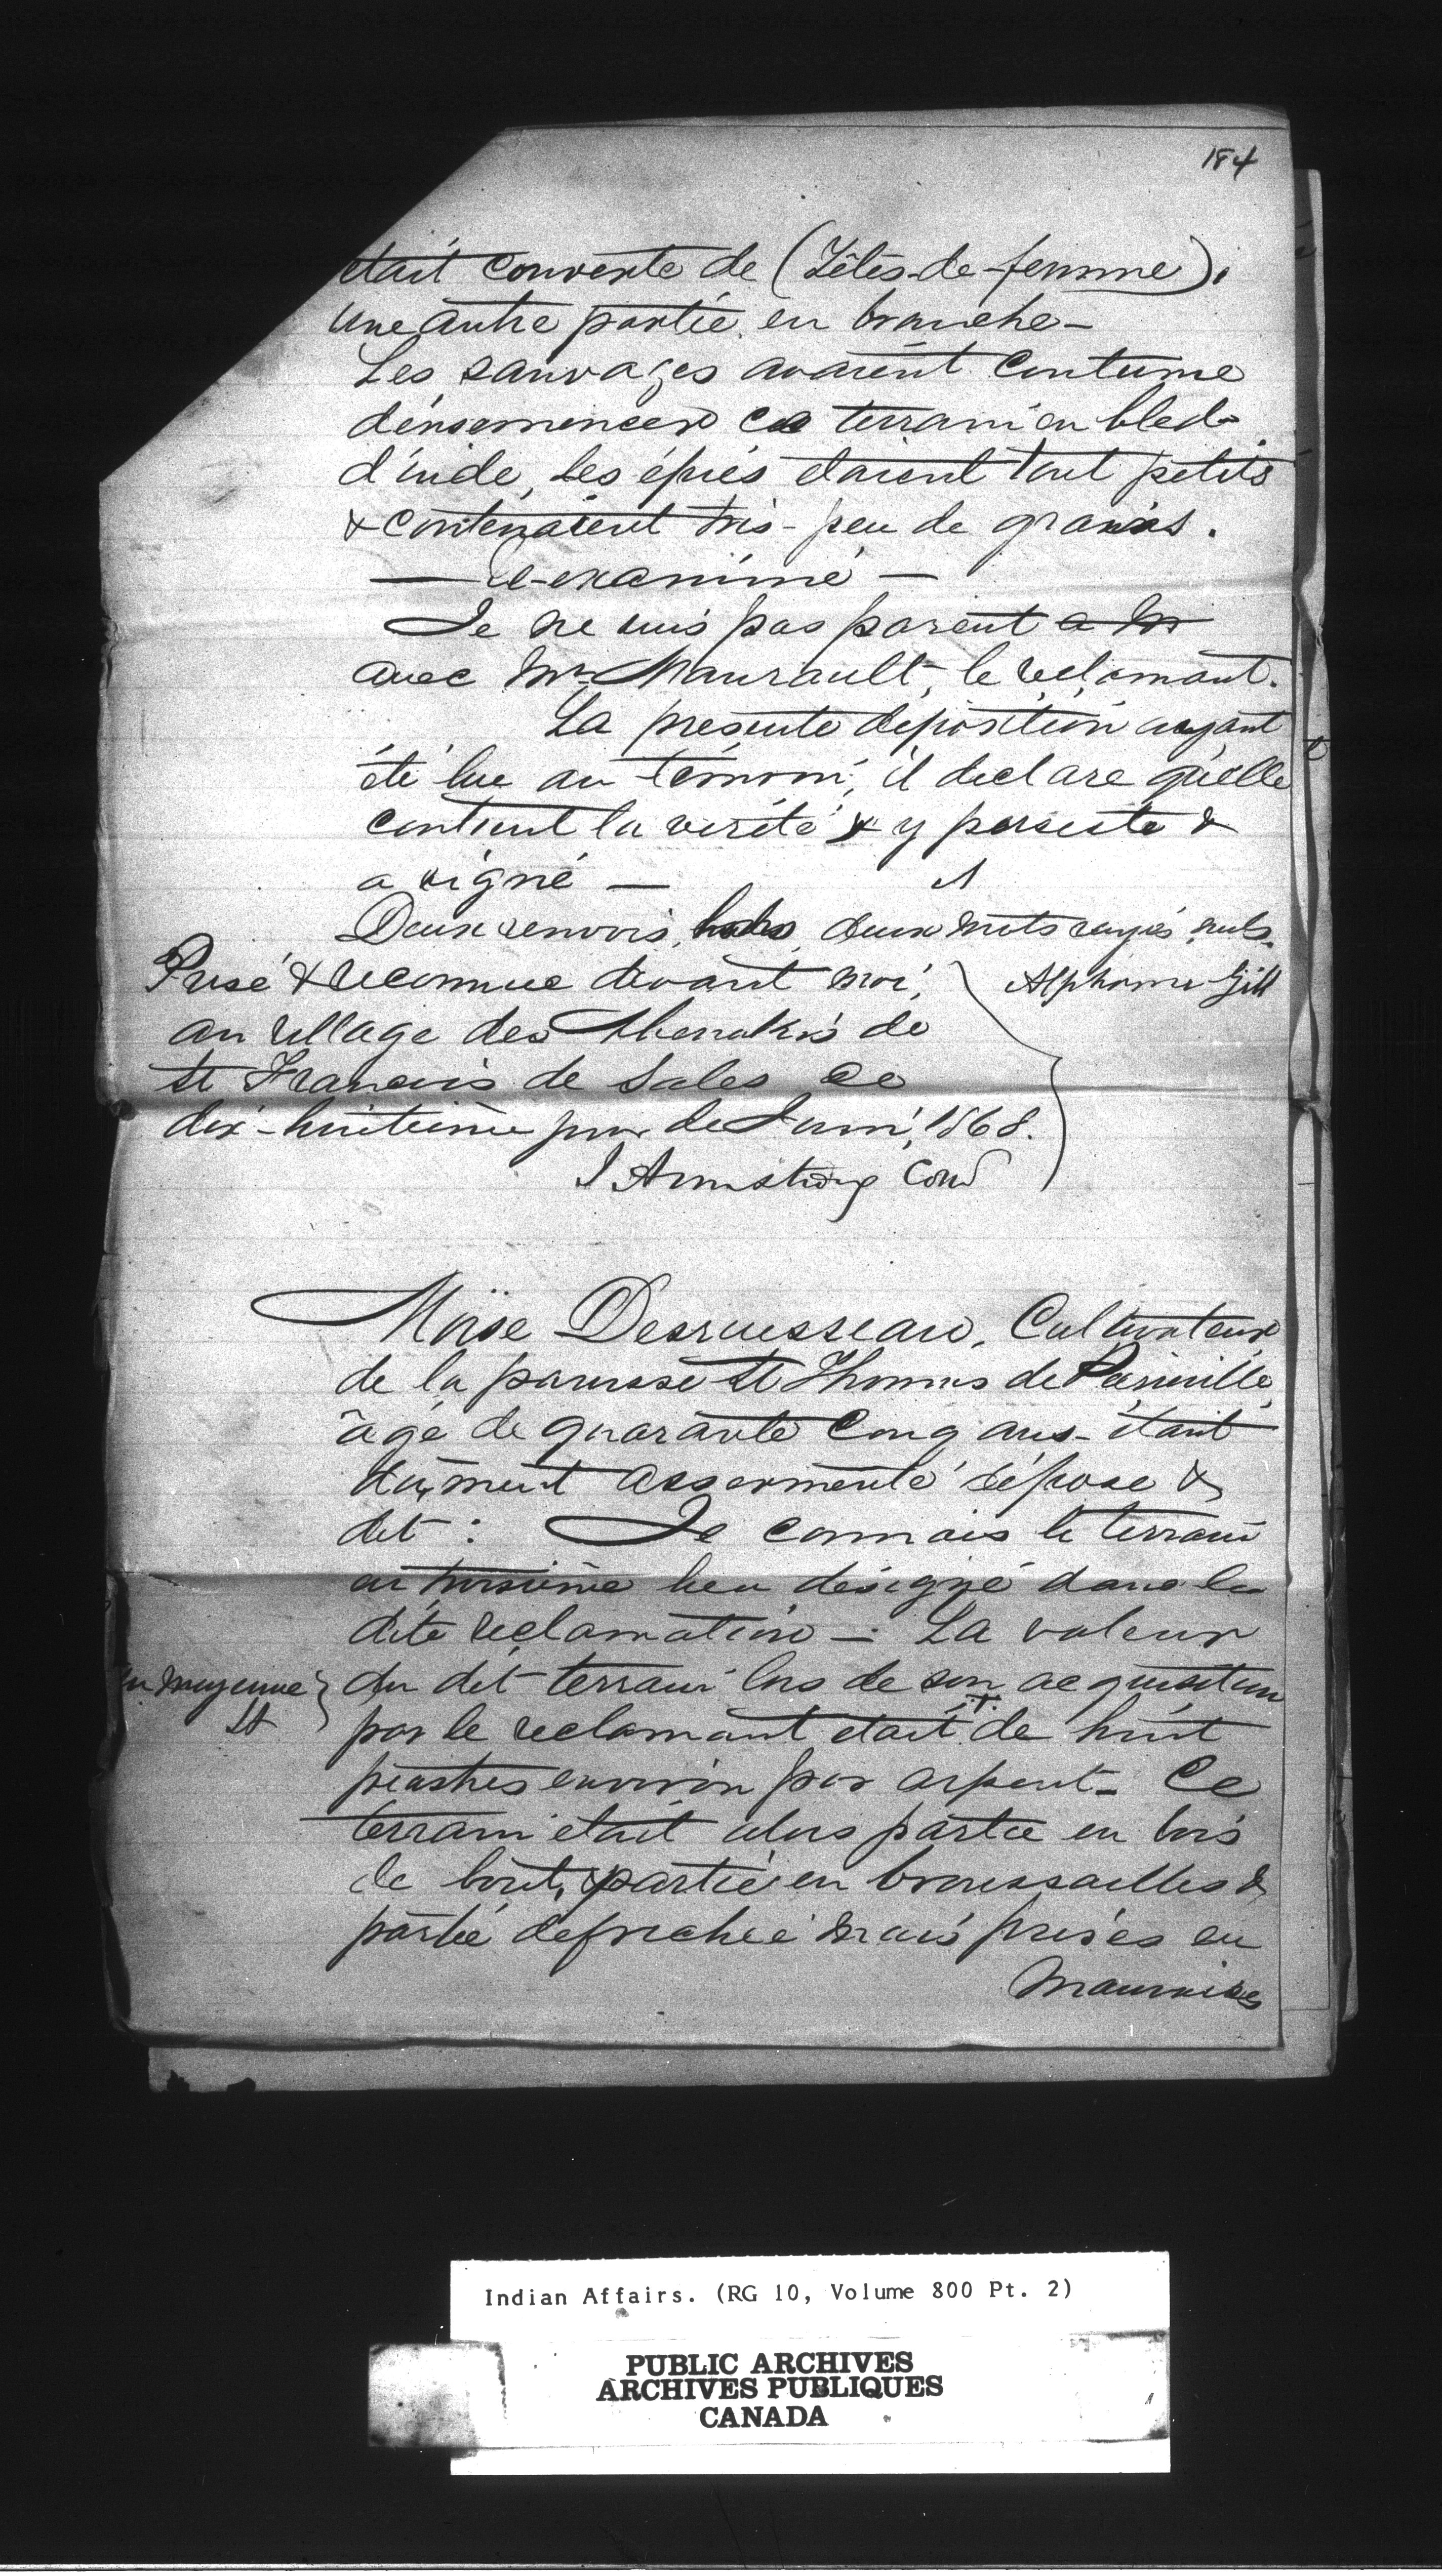 184
était couverte de (Têtes-de-femme),
une autre partie en branche -
Les sauvages avaient coutume
d'ensemencer ce terrain en bled-
d'inde, les épies étaient tout petits
& contenaient très-peu de grains.
— Ré-examiné —
Je ne suis pas parent a Mr
avec Mr Maurault, le réclamant.
La presente déposition ayant
été lue au témoin, il declare qu'elle
contient la verité & y persiste &
a signé —
Deux renvois, deux mots rayés nuls.
Prise & reconnue devant moi,
Alphonse Gill
au village des Abenakis de
St Francois de Sales ce
dix-huitième jour de Juin, 1868.
J Armstrong Com
Moïse Desruisseau, Cultivateur
de la paroisse St Thomas de Pierreville,
âgé de quarante cinq ans - étant
dûment assermenté dépose &
dit : Je connais le terrain
en troisième lieu désigné dans la
dite réclamation - La valeur
en moyenne
du dit terrain lors de son acquisition
par le reclamant était de huit
piastres environ par arpent - Ce
terrain était alors partie en bois
de bout, partie en broussailles &
partie defrichée mais prises en
mauvaises
Indian Affairs. (RG 10, Volume 800 Pt. 2)
PUBLIC ARCHIVES
ARCHIVES PUBLIQUES
CANADA